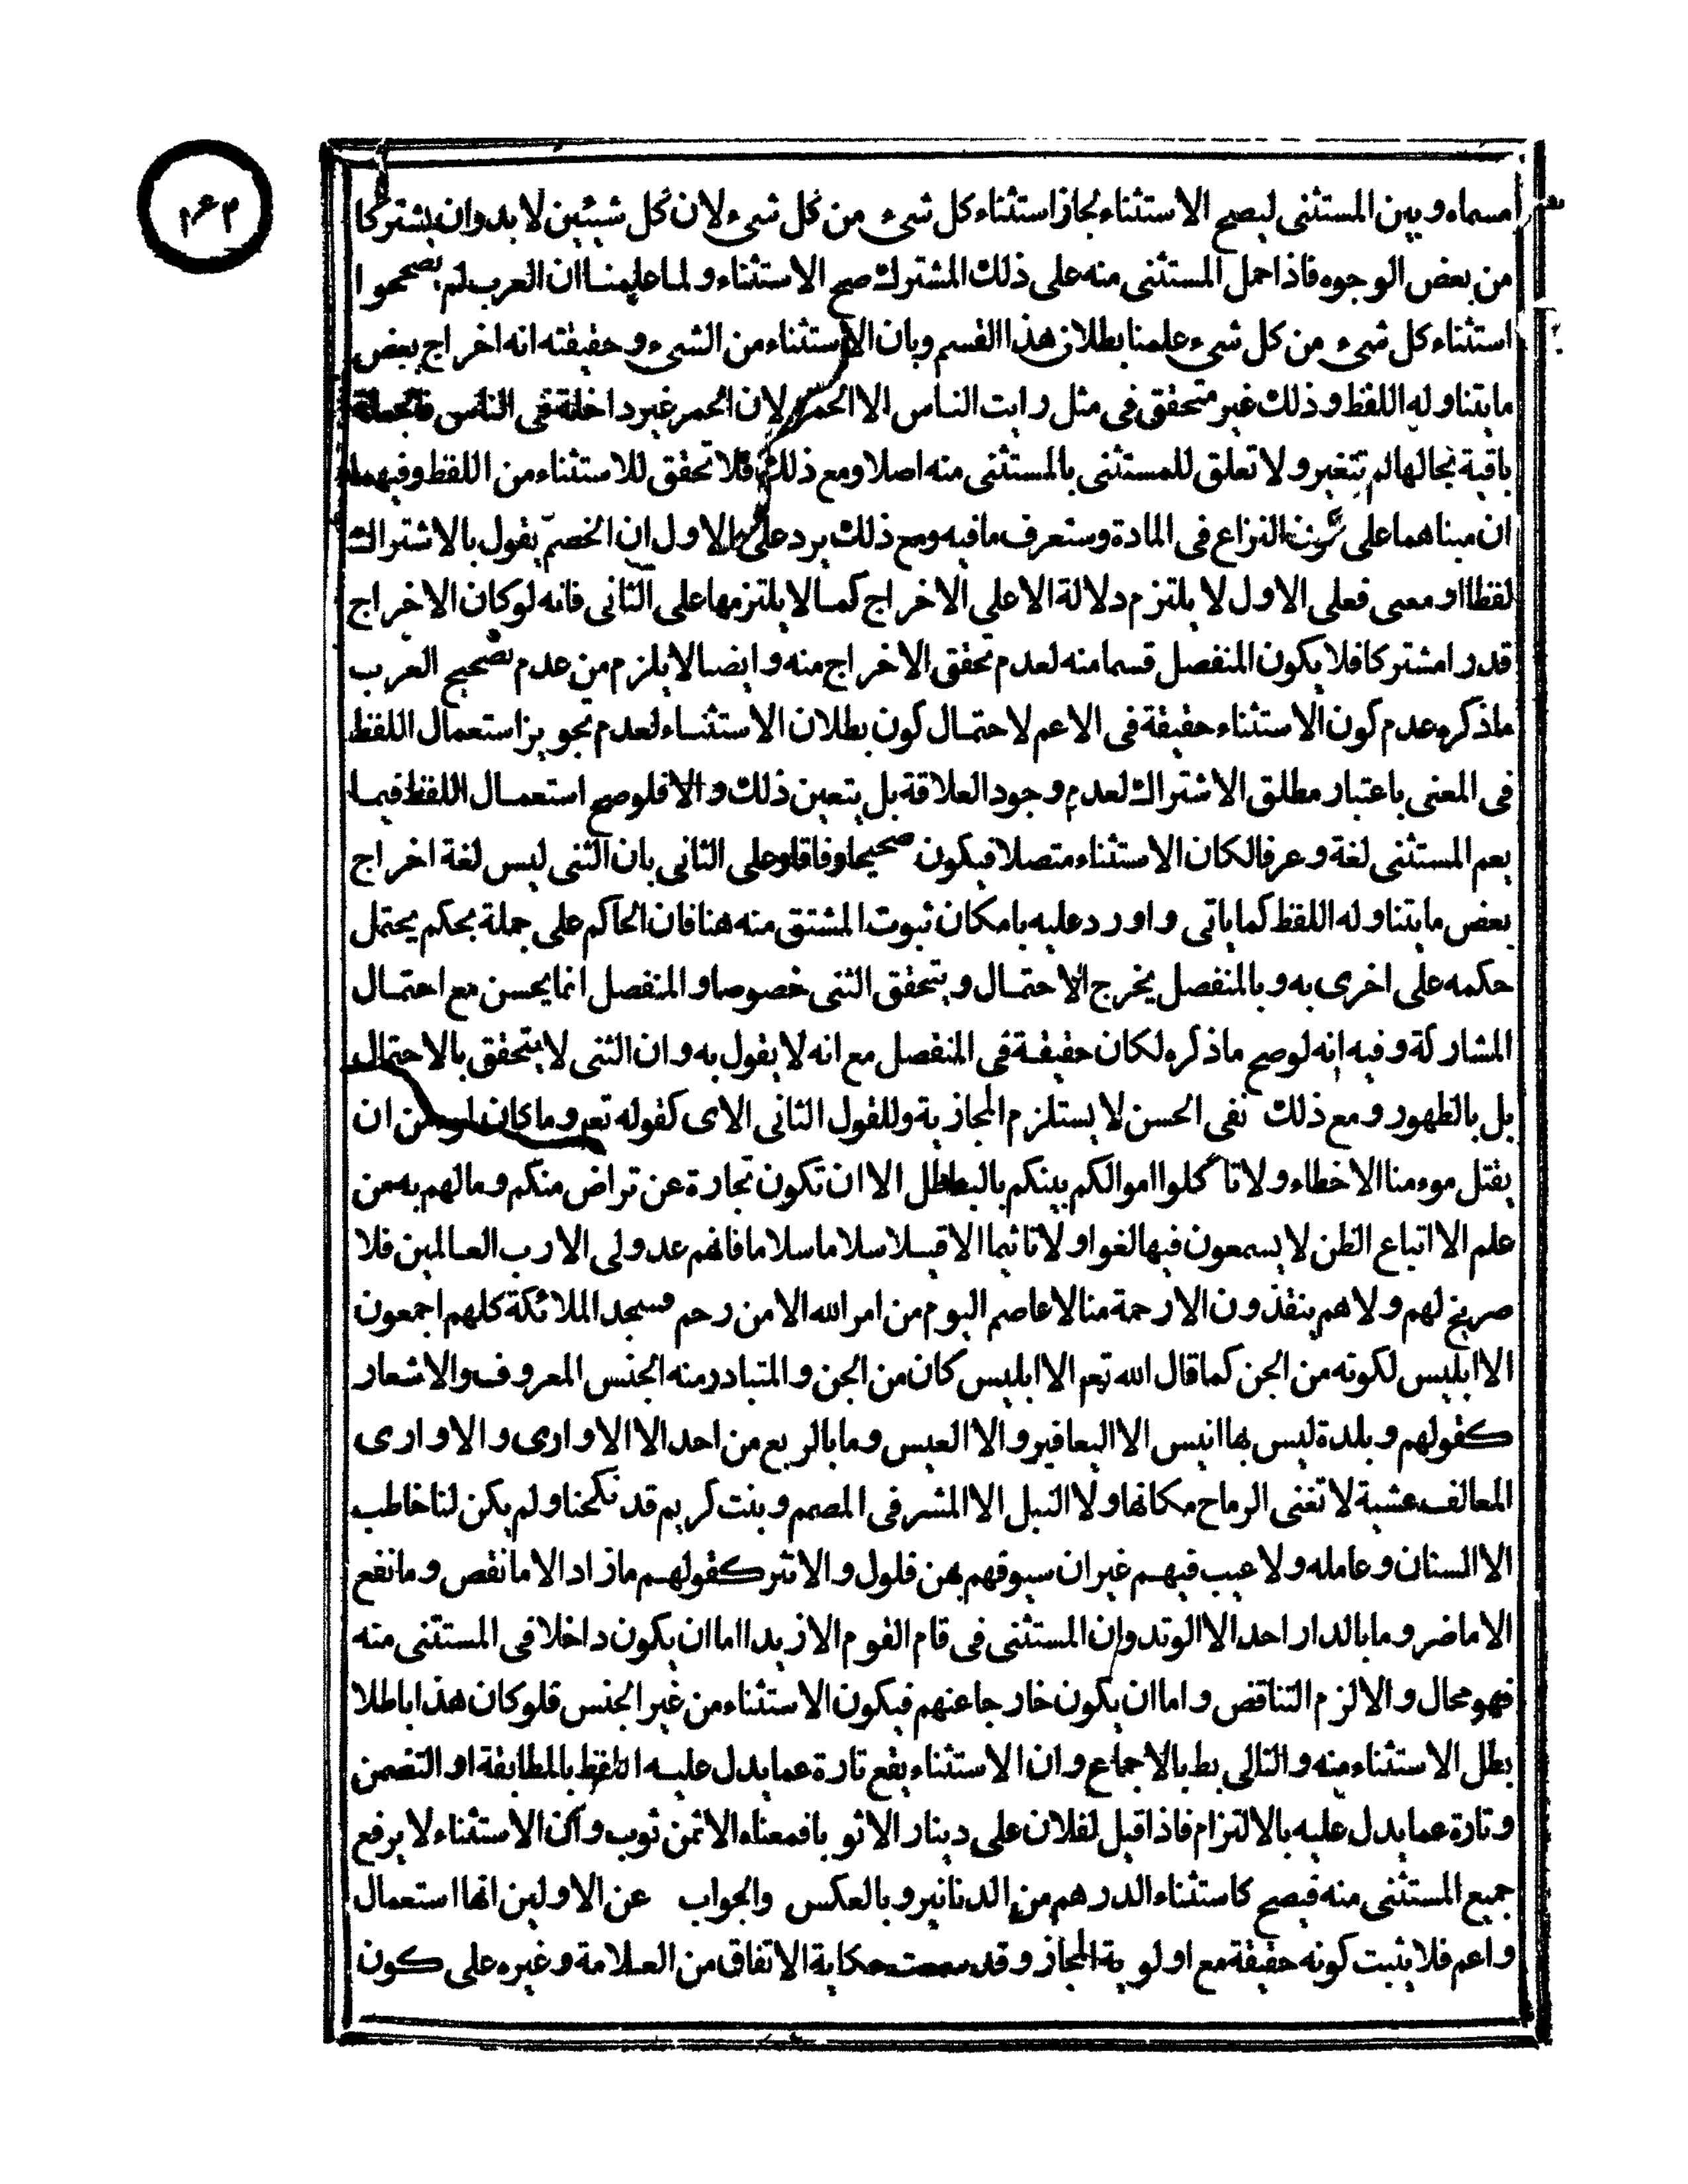 ١٦٤
مسماه وبين المستثنى ليصح الاستثناء لجاز استثناء كل شيء من كل شيء لان كل شيئين لا بد وان يشتركا
من بعض الوجوه فاذا حمل المستثنى منه على ذلك المشترك صح الاستثناء ولما علمنا ان العرب لم يصححوا
استثناء كل شيء من كل شيء علمنا بطلان هذا القسم وبان الاستثناء من الشيء وحقيقته انه اخراج بعض
ما يتناوله اللفظ وذلك غير متحقق في مثل رايت الناس الا الحمر لان الحمر غير داخلة في الناس فالجملة
باقية بحالها لم تتغير ولا تعلق للمستثنى بالمستثنى منه اصلا ومع ذلك فلا تحقق للاستثناء من اللفظ وفيهما
ان مبناهما على النزاع في المادة وستعرف ما فيه ومع ذلك يرد على الاول ان الخصم يقول بالاشتراك
لفظا او معنى فعلى الاول لا يلتزم دلالة الا على الاخراج كما لا يلتزمها على الثاني فانه لو كان الاخراج
قدرا مشتركا فلا يكون المنفصل قسما منه لعدم تحقق الاخراج منه وايضا لا يلزم من عدم تصحيح العرب
ما ذكره عدم كون الاستثناء حقيقة في الاعم لاحتمال كون بطلان الاستثناء لعدم تجويز استعمال اللفظ
في المعنى باعتبار مطلق الاشتراك لعدم وجود العلاقة بل يتعين ذلك والا فلو صح استعمال اللفظ فيما
يعم المستثنى لغة وعرفا لكان الاستثناء متصلا فيكون صحيحا وفاقا وعلى الثاني بان الثنى ليس لغة اخراج
بعض ما يتناوله اللفظ كما ياتى واورد عليه بامكان ثبوت المشتق منه هنا فان الحاكم على جملة بحكم يحتمل
حكمه على اخرى به وبالمنفصل يخرج الاحتمال ويتحقق الثنى خصوصا والمنفصل انما يحسن مع احتمال
المشاركة وفيه انه لو صح ما ذكره لكان حقيقة في المنفصل مع انه لا يقول به وان الثنى لا يتحقق بالاحتمال
بل بالظهور ومع ذلك نفى الحسن لا يستلزم المجازية وللقول الثانى الاى كقوله تعم وما كان لمومن ان
يقتل مومنا الا خطاء ولا تاكلوا اموالكم بينكم بالباطل الا ان تكون تجارة عن تراض منكم وما لهم به من
علم الا اتباع الظن لا يسمعون فيها لغوا ولا تاثيما الا قيلا سلاما سلاما فانهم عدو لى الا رب العالمين فلا
صريخ لهم ولا هم ينقذون الا رحمة منا لا عاصم اليوم من امر الله الا من رحم فسجد الملائكة كلهم اجمعون
الا ابليس لكونه من الجن كما قال الله تعم الا ابليس كان من الجن والمتبادر منه الجنس المعروف والاشعار
كقولهم وبلدة ليس بها انيس الا اليعافير والا العيس وما بالربع من احد الا الاوارى والاوارى
المعالف عشية لا تغنى الرماح مكانها ولا النبل الا المشرفى المصمم وبنت كريم قد نكحنا ولم يكن لنا خاطب
الا السنان وعامله ولا عيب فيهم غير ان سيوفهم بهن فلول والانثر كقولهم ما زاد الا ما نقص وما نفع
الا ما ضر وما بالدار احد الا الوتد وان المستثنى في قام القوم الا زيدا اما ان يكون داخلا في المستثنى منه
فهو محال والا لزم التناقض واما ان يكون خارجا عنهم فيكون الاستثناء من غير الجنس فلو كان هذا باطلا
بطل الاستثناء منه والتالى بط بالاجماع وان الاستثناء يقع تارة عما يدل عليه اللفظ بالمطابقة او التضمن
وتارة عما يدل عليه بالالتزام فاذا قيل لفلان على دينار الا ثوبا فمعناه الا ثمن ثوب وان الاستثناء لا يرفع
جميع المستثنى منه فيصح كاستثناء الدرهم من الدنانير وبالعكس والجواب عن الاولين انها استعمال
واعم فلا يثبت كونه حقيقة مع اولوية المجاز وقد سمعت حكاية الاتفاق من العلامة وغيره على كون